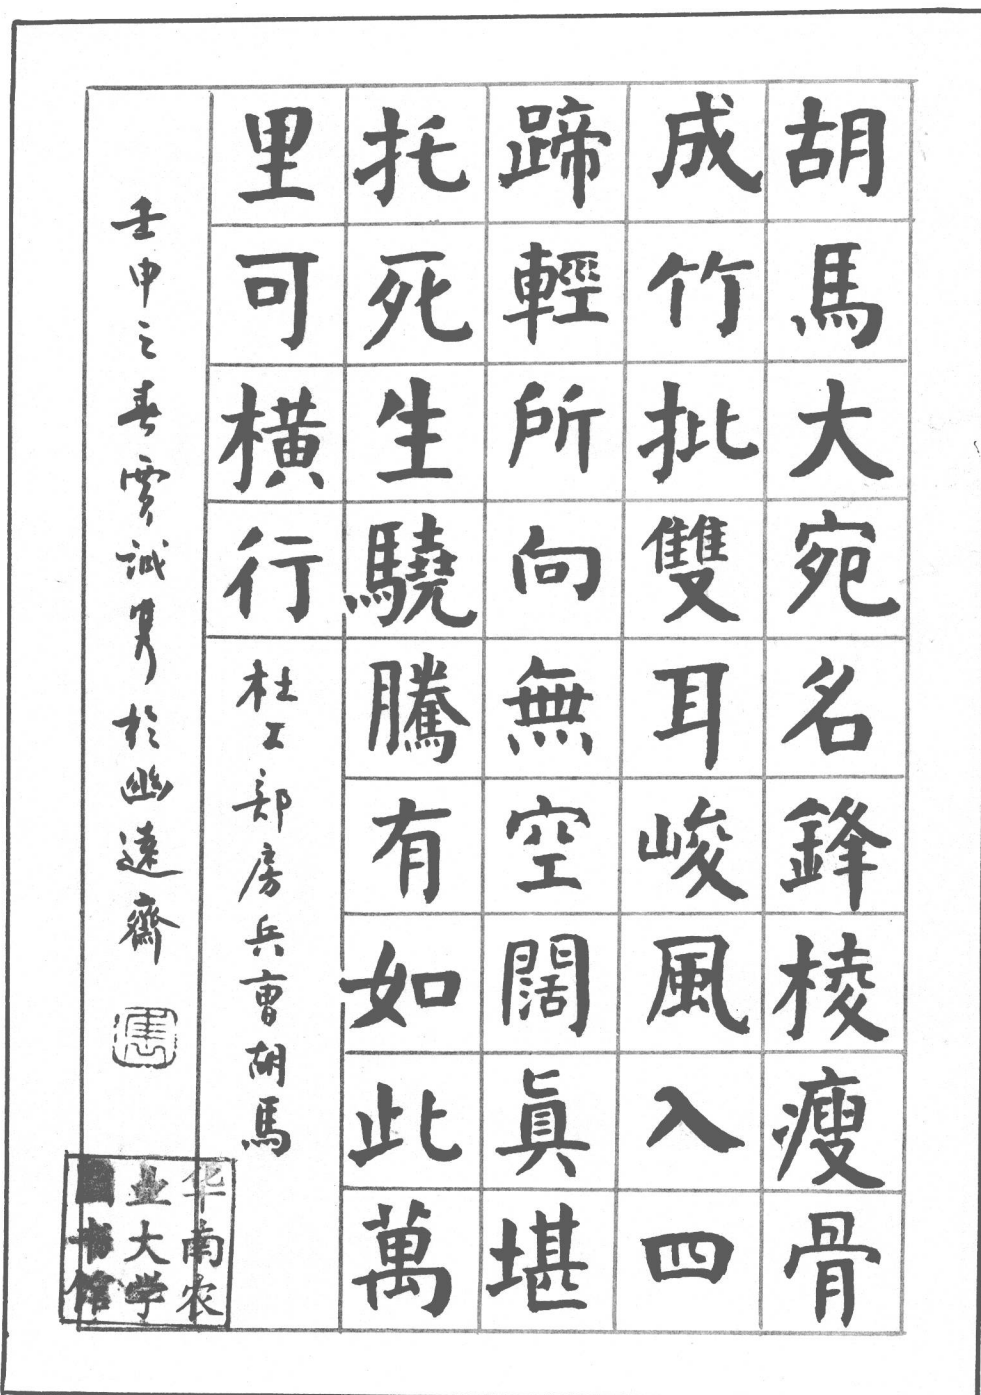 胡馬大宛名鋒棱瘦骨
成竹批雙耳峻風入四
蹄輕所向無空闊真堪
托死生驍騰有如此萬
里可橫行
杜工部房兵曹胡馬
壬申之春賈誠隽於幽遠齋
华南农
业大学
图书馆